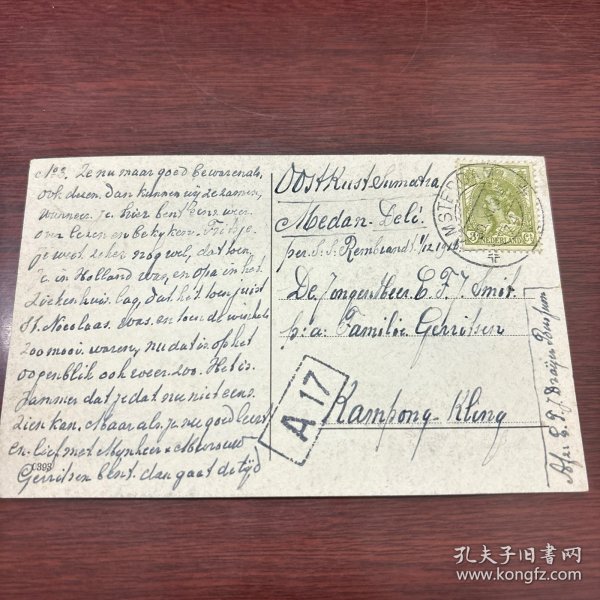 No 3. Ze nu maar goed bewaren als
ook deren. Dan kunnen wij ze samen,
wanneer je hier bent eens weer
over lezen en bekijken. Fritsje
je weet zeker nog wel, dat toen
je in Holland was, en opa in het
Ziekenhuis lag, dat het toen juist
St. Nicolaas was, en toen de winkels
zoo mooi waren, nu dat is op het
oogenblik ook weer zoo. Het is
jammer dat je dat nu niet eens
zien kan. Maar als je nu goed leert
en lief met Mijnheer & Mevrouw
Gerritsen bent, dan gaat de tijd
6393
Oostkust Sumatra
Medan-Deli.
per S.S. Rembrandt 1/12 19
De Jongenheer E. F. J. Smit.
p/a: Familie Gerritsen
Kampong-Kling
A 17
AMSTERDAM
NEDERLAND
Afz: E. F. J.
孔夫子旧书网
www.kongfz.com